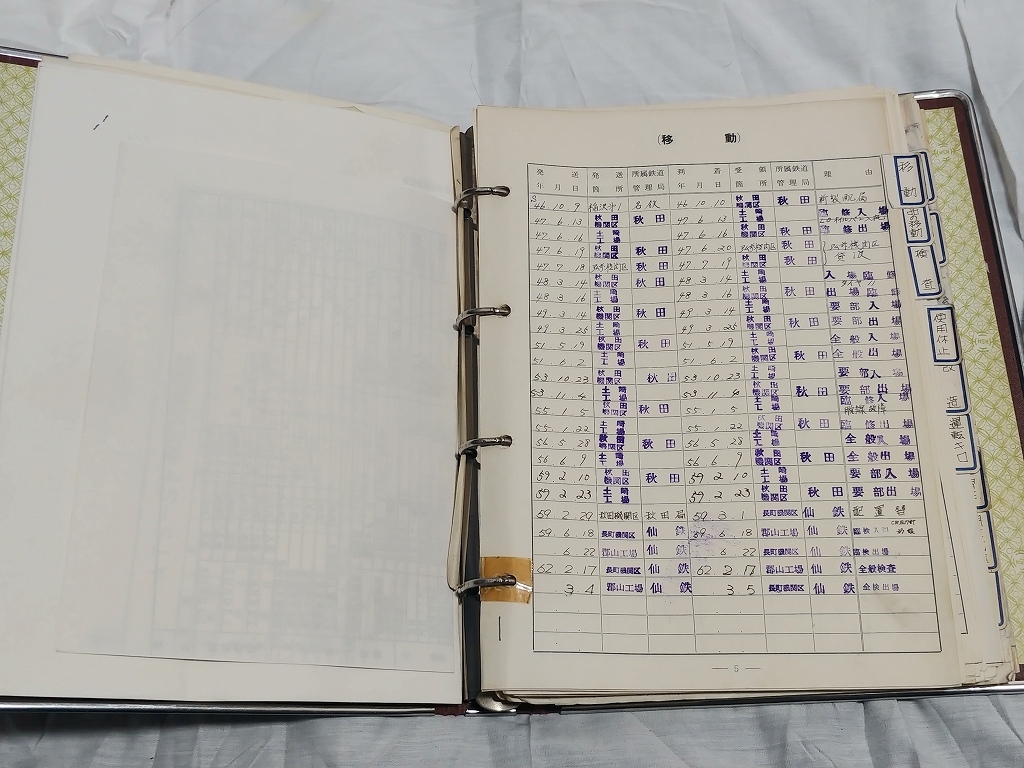 (移 動)
発 送 年 月 日 発 送 箇 所 所属鉄道管理局 到 着 年 月 日 受 領 箇 所 所属鉄道管理局 理 由
46. 10. 9 稲沢 名鉄 46. 10. 10 秋田機関区 秋田 新製配属
47. 6. 13 秋田機関区 秋田 47. 6. 13 土崎工場 臨修入場
47. 6. 16 土崎工場 47. 6. 16 秋田機関区 秋田 臨修出場
47. 6. 19 秋田機関区 秋田 47. 6. 20 秋田
47. 7. 18 47. 7. 19 秋田機関区 秋田
48. 3. 14 秋田機関区 秋田 48. 3. 14 土崎工場 入場臨修
48. 3. 16 土崎工場 48. 3. 16 秋田機関区 秋田 出場臨修
49. 3. 14 秋田機関区 秋田 49. 3. 14 土崎工場 要部入場
49. 3. 25 土崎工場 49. 3. 25 秋田機関区 秋田 要部出場
51. 5. 19 秋田機関区 秋田 51. 5. 19 土崎工場 全般入場
51. 6. 2 土崎工場 51. 6. 2 秋田機関区 秋田 全般出場
53. 10. 23 秋田機関区 秋田 53. 10. 23 土崎工場 要部入場
53. 11. 4 土崎工場 53. 11. 4 秋田機関区 秋田 要部出場
55. 1. 5 秋田機関区 秋田 55. 1. 5 土崎工場 臨修入場
55. 1. 22 土崎工場 55. 1. 22 秋田機関区 秋田 臨修出場
56. 5. 28 秋田機関区 秋田 56. 5. 28 土崎工場 全般入場
56. 6. 9 土崎工場 56. 6. 9 秋田機関区 秋田 全般出場
59. 2. 10 秋田機関区 秋田 59. 2. 10 土崎工場 要部入場
59. 2. 23 土崎工場 59. 2. 23 秋田機関区 秋田 要部出場
59. 2. 29 秋田機関区 秋田局 59. 3. 1 長町機関区 仙鉄 配置替
59. 6. 18 長町機関区 仙鉄 59. 6. 18 郡山工場 仙鉄 臨検入場
. 6. 22 郡山工場 仙鉄 . 6. 22 長町機関区 仙鉄 臨検出場
62. 2. 17 長町機関区 仙鉄 62. 2. 17 郡山工場 仙鉄 全般検査
3 4 郡山工場 仙鉄 3 5 長町機関区 仙鉄 全検出場
— 5 —
移動
使用休止
運転キロ